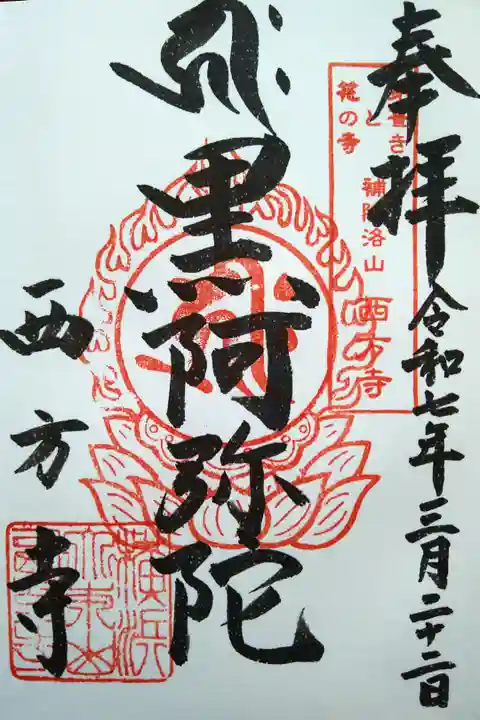 奉拝
令和七年三月二十二日
と
花の寺
補陀洛山
西方寺
黒阿弥陀
西方寺
横浜